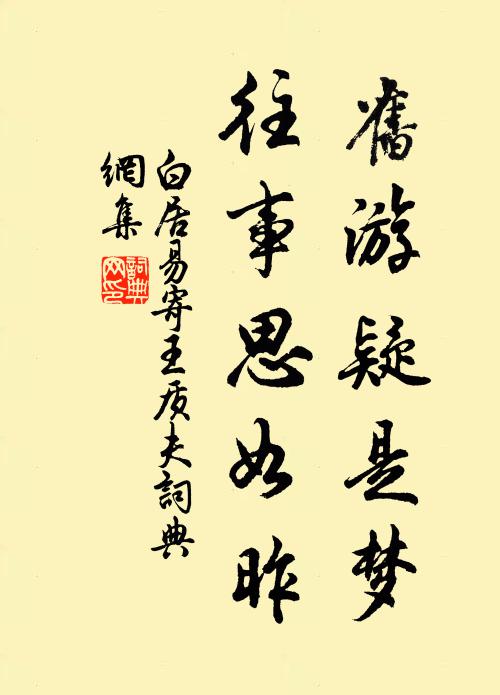 舊游疑是梦
往事思如昨
白居易寄王质夫詞典
網集
詞典網印